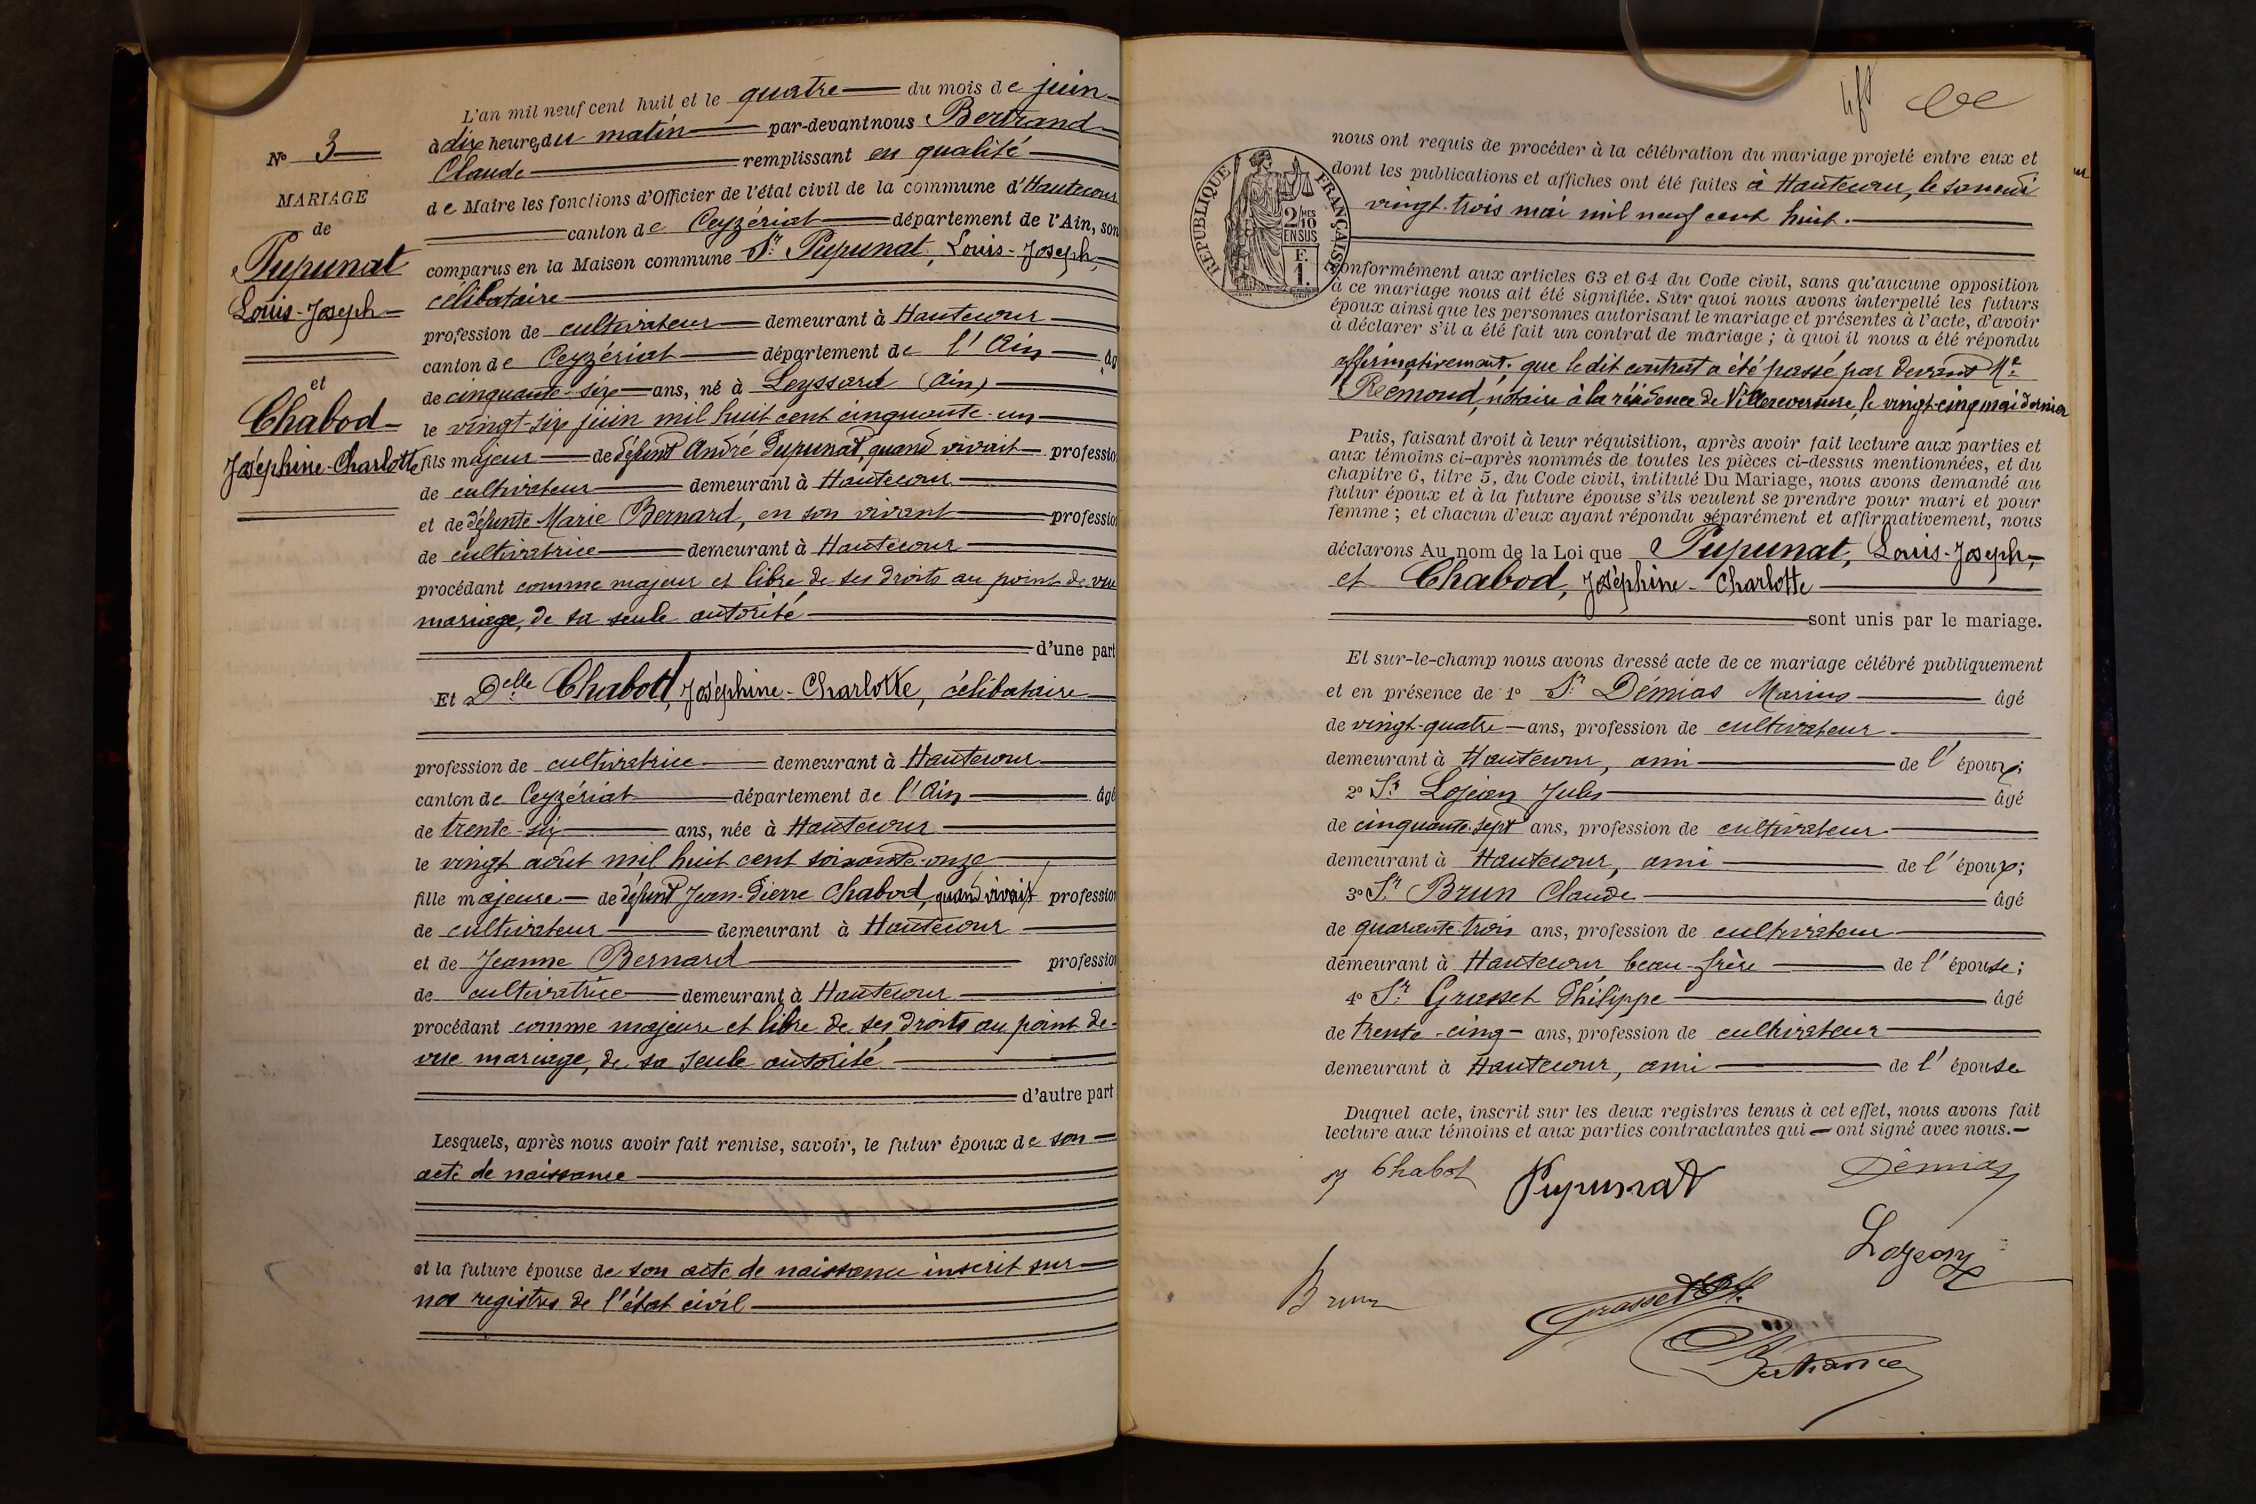 N° 3
MARIAGE
de
Pupunat
Louis-Joseph
et
Chabod
Joséphine-Charlotte
L'an mil neuf cent huit et le quatre du mois de juin
à dix heures du matin par-devant nous Bertrand
Claude remplissant en qualité
de Maire les fonctions d'Officier de l'état civil de la commune d'Hautecour
canton de Ceyzériat département de l'Ain, son
comparus en la Maison commune Sr Pupunat, Louis-Joseph,
célibataire
profession de cultivateur demeurant à Hautecour
canton de Ceyzériat département de l'Ain âg
de cinquante-six ans, né à Leyssard (Ain)
le vingt-six juin mil huit cent cinquante-un
fils majeur de défunt André Pupunat, quand vivait professio
de cultivateur demeurant à Hautecour
et de défunte Marie Bernard, en son vivant profession
de cultivatrice demeurant à Hautecour
procédant comme majeur et libre de ses droits au point de vue
mariage, de sa seule autorité
d'une part
Et Delle Chabod, Joséphine-Charlotte, célibataire
profession de cultivatrice demeurant à Hautecour
canton de Ceyzériat département de l'Ain âgé
de trente-six ans, née à Hautecour
le vingt août mil huit cent soixante-onze
fille majeure de défunt Jean-Pierre Chabod, quand vivait profession
de cultivateur demeurant à Hautecour
et de Jeanne Bernard profession
de cultivatrice demeurant à Hautecour
procédant comme majeure et libre de ses droits au point de
vue mariage, de sa seule autorité
d'autre part
Lesquels, après nous avoir fait remise, savoir, le futur époux de son
acte de naissance
et la future épouse de son acte de naissance inscrit sur
nos registres de l'état civil
RÉPUBLIQUE FRANÇAISE
2/10 MES
EN SUS
F.
1.
nous ont requis de procéder à la célébration du mariage projeté entre eux et
dont les publications et affiches ont été faites à Hautecour, le samedi
vingt-trois mai mil neuf cent huit.
conformément aux articles 63 et 64 du Code civil, sans qu'aucune opposition
à ce mariage nous ait été signifiée. Sur quoi nous avons interpellé les futurs
époux ainsi que les personnes autorisant le mariage et présentes à l'acte, d'avoir
à déclarer s'il a été fait un contrat de mariage ; à quoi il nous a été répondu
affirmativement. que le dit contrat a été passé par devant Me
Reémond, notaire à la résidence de Villereversure, le vingt-cinq mai dernier
Puis, faisant droit à leur réquisition, après avoir fait lecture aux parties et
aux témoins ci-après nommés de toutes les pièces ci-dessus mentionnées, et du
chapitre 6, titre 5, du Code civil, intitulé Du Mariage, nous avons demandé au
futur époux et à la future épouse s'ils veulent se prendre pour mari et pour
femme ; et chacun d'eux ayant répondu séparément et affirmativement, nous
déclarons Au nom de la Loi que Pupunat, Louis-Joseph,
et Chabod, Joséphine-Charlotte
sont unis par le mariage.
Et sur-le-champ nous avons dressé acte de ce mariage célébré publiquement
et en présence de 1° Sr Démias Marius âgé
de vingt-quatre ans, profession de cultivateur
demeurant à Hautecour, ami de l'époux;
2° Sr Lojean Jules âgé
de cinquante-sept ans, profession de cultivateur
demeurant à Hautecour, ami de l'époux;
3° Sr Brun Claude âgé
de quarante-trois ans, profession de cultivateur
demeurant à Hautecour beau-frère de l'épouse;
4° Sr Grasset Philippe âgé
de trente-cinq ans, profession de cultivateur
demeurant à Hautecour, ami de l'épouse
Duquel acte, inscrit sur les deux registres tenus à cet effet, nous avons fait
lecture aux témoins et aux parties contractantes qui ont signé avec nous.
J Chabod Pupunat Démias
Lojean
Brun Grasset Ph.
Bertrand